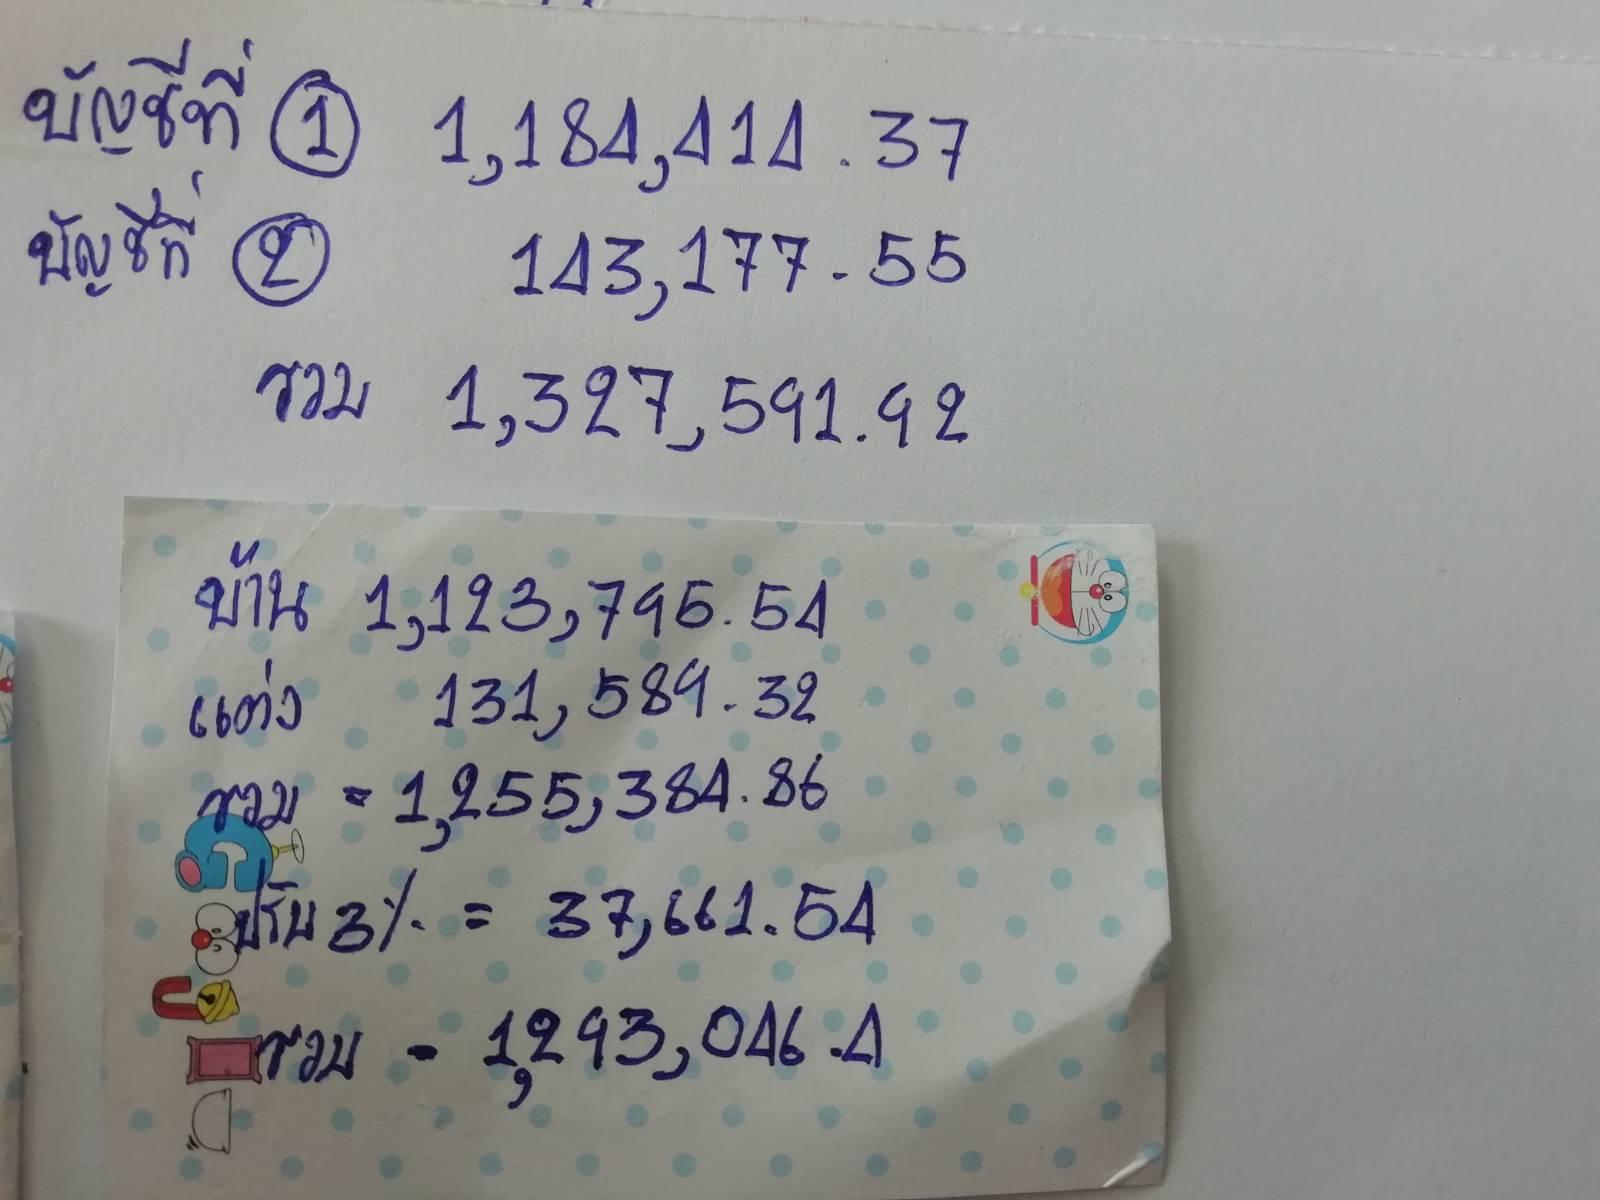 บัญชีที่ 1 1,184,414.37
บัญชีที่ 2 143,177.55
รวม 1,327,591.92
บ้าน 1,123,795.54
แต่ง 131,589.32
รวม = 1,255,384.86
ปรับ 3% = 37,661.54
รวม = 1,293,046.4